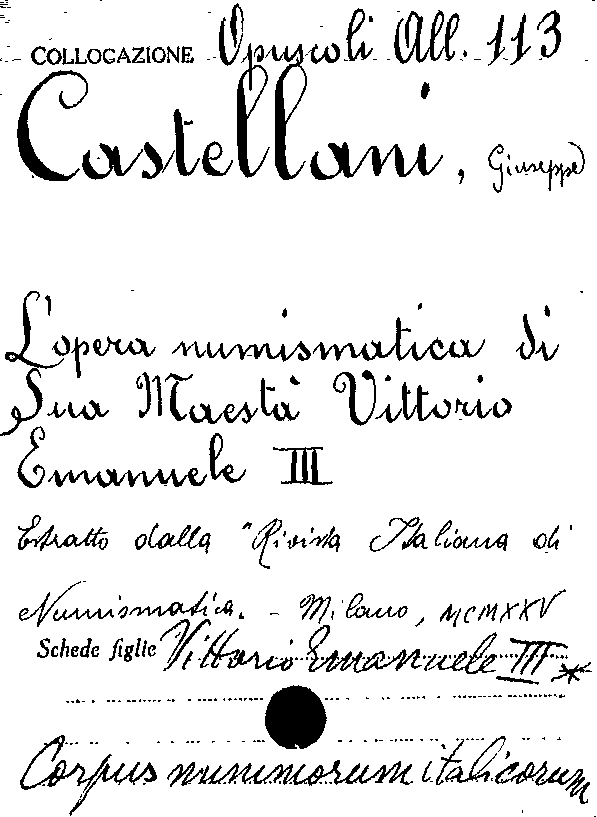 COLLOCAZIONE Opuscoli All. 113
Castellani, Giuseppe
L'opera numismatica di
Sua Maestà Vittorio
Emanuele III
Estratto dalla "Rivista Italiana di
Numismatica. - Milano, MCMXXV
Schede figlie Vittorio Emanuele III *
Corpus nummorum italicorum